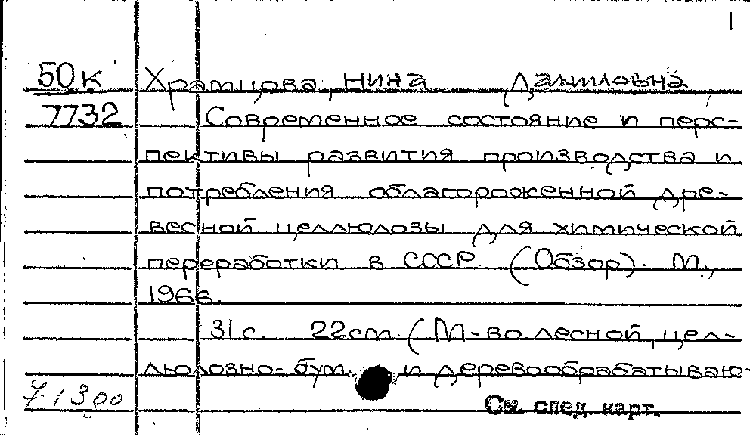 1
50к Храмцова, Нина Даниловна
7732 Современное состояние и перс-
пективы развития производства и
потребления облагороженной дре-
весной целлюлозы для химической
переработки в СССР. (Обзор). М.,
1966.
31 с. 22 см. (М-во лесной, цел-
люлозно-бум. и деревообрабатываю-
71300
См. след. карт.